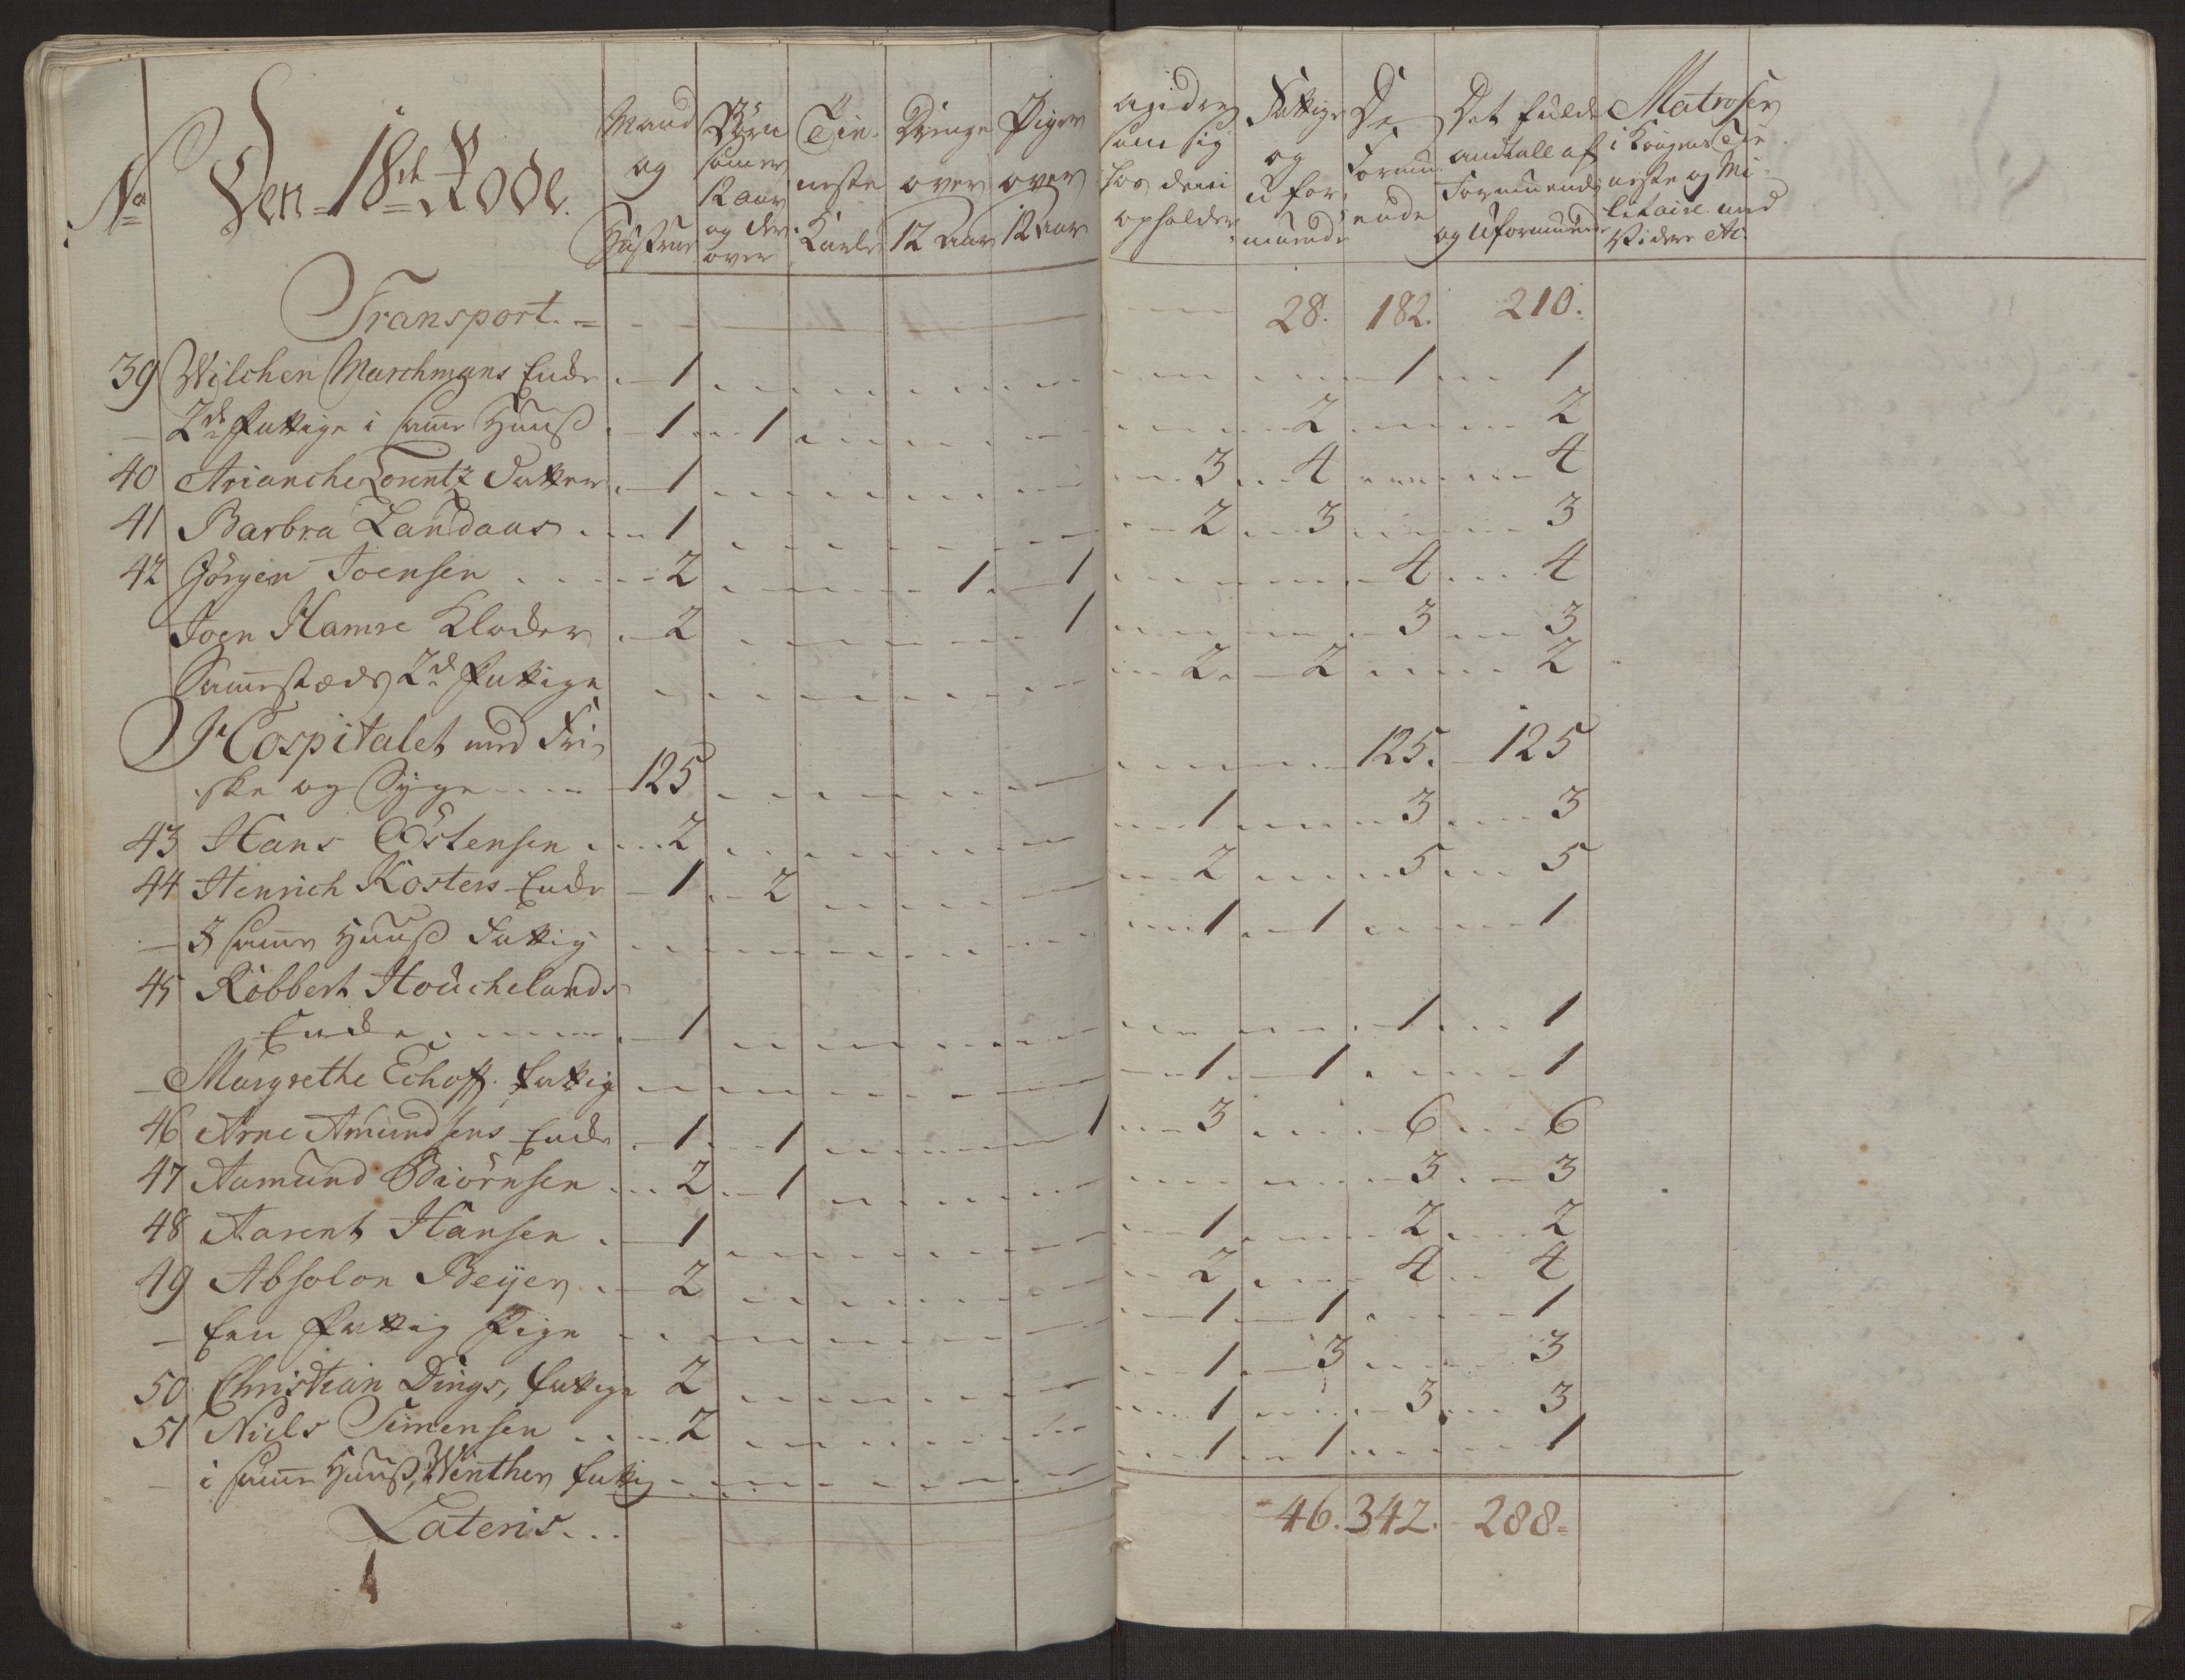 No Den 18de Rode.
Mand og Hustrue
Börn som er 12 aar og der over
Tieneste Karle
Drenge over 12 Aar
Piger over 12 Aar
andre som sig hos dem opholder
Fattige og uformuende
De Formuende
Det fulde andtall af Formuende og Uformuende
Matroser i Kongens Tieneste og Militaire med Videre etc.
Transport. = 28. 182. 210.
39 Wilchen Marchmans Enke 1 1 1
2de Fattige i samme Huus 1 1 2 2
40 Arianche Lorentz Datter 1 3 4 4
41 Barbra Landaas 1 2 3 3
42 Jörgen Joensen 2 1 1 4 4
Joen Hamre Kloder 2 1 3 3
Sammestæds 2de Fattige 2 2 2
Hospitalet med Fri
ske og Syge 125 125. 125
43 Hans Östensen 2 1 3 3
44 Henrich Kosters Enke 1 2 2 5 5
I samme Huus Fattig 1 1 1
45 Robbert Houchelands
Enke 1 1 1
Margrethe Echoff. fattig 1 1 1
46 Arne Amundsens Enke 1 1 1 3 6 6
47 Aamund Biörnsen 2 1 3 3
48 Aarent Hansen 1 1 2 2
49 Absolon Beyer 2 2 4 4
Een fattig Pige 1 1 1
50 Christian Dings, fattige 2 1 3 3
51 Niels Simensen 2 1 3 3
i samme Huus, Winther fattig 1 1 1
Lateris... 46. 342. 288=